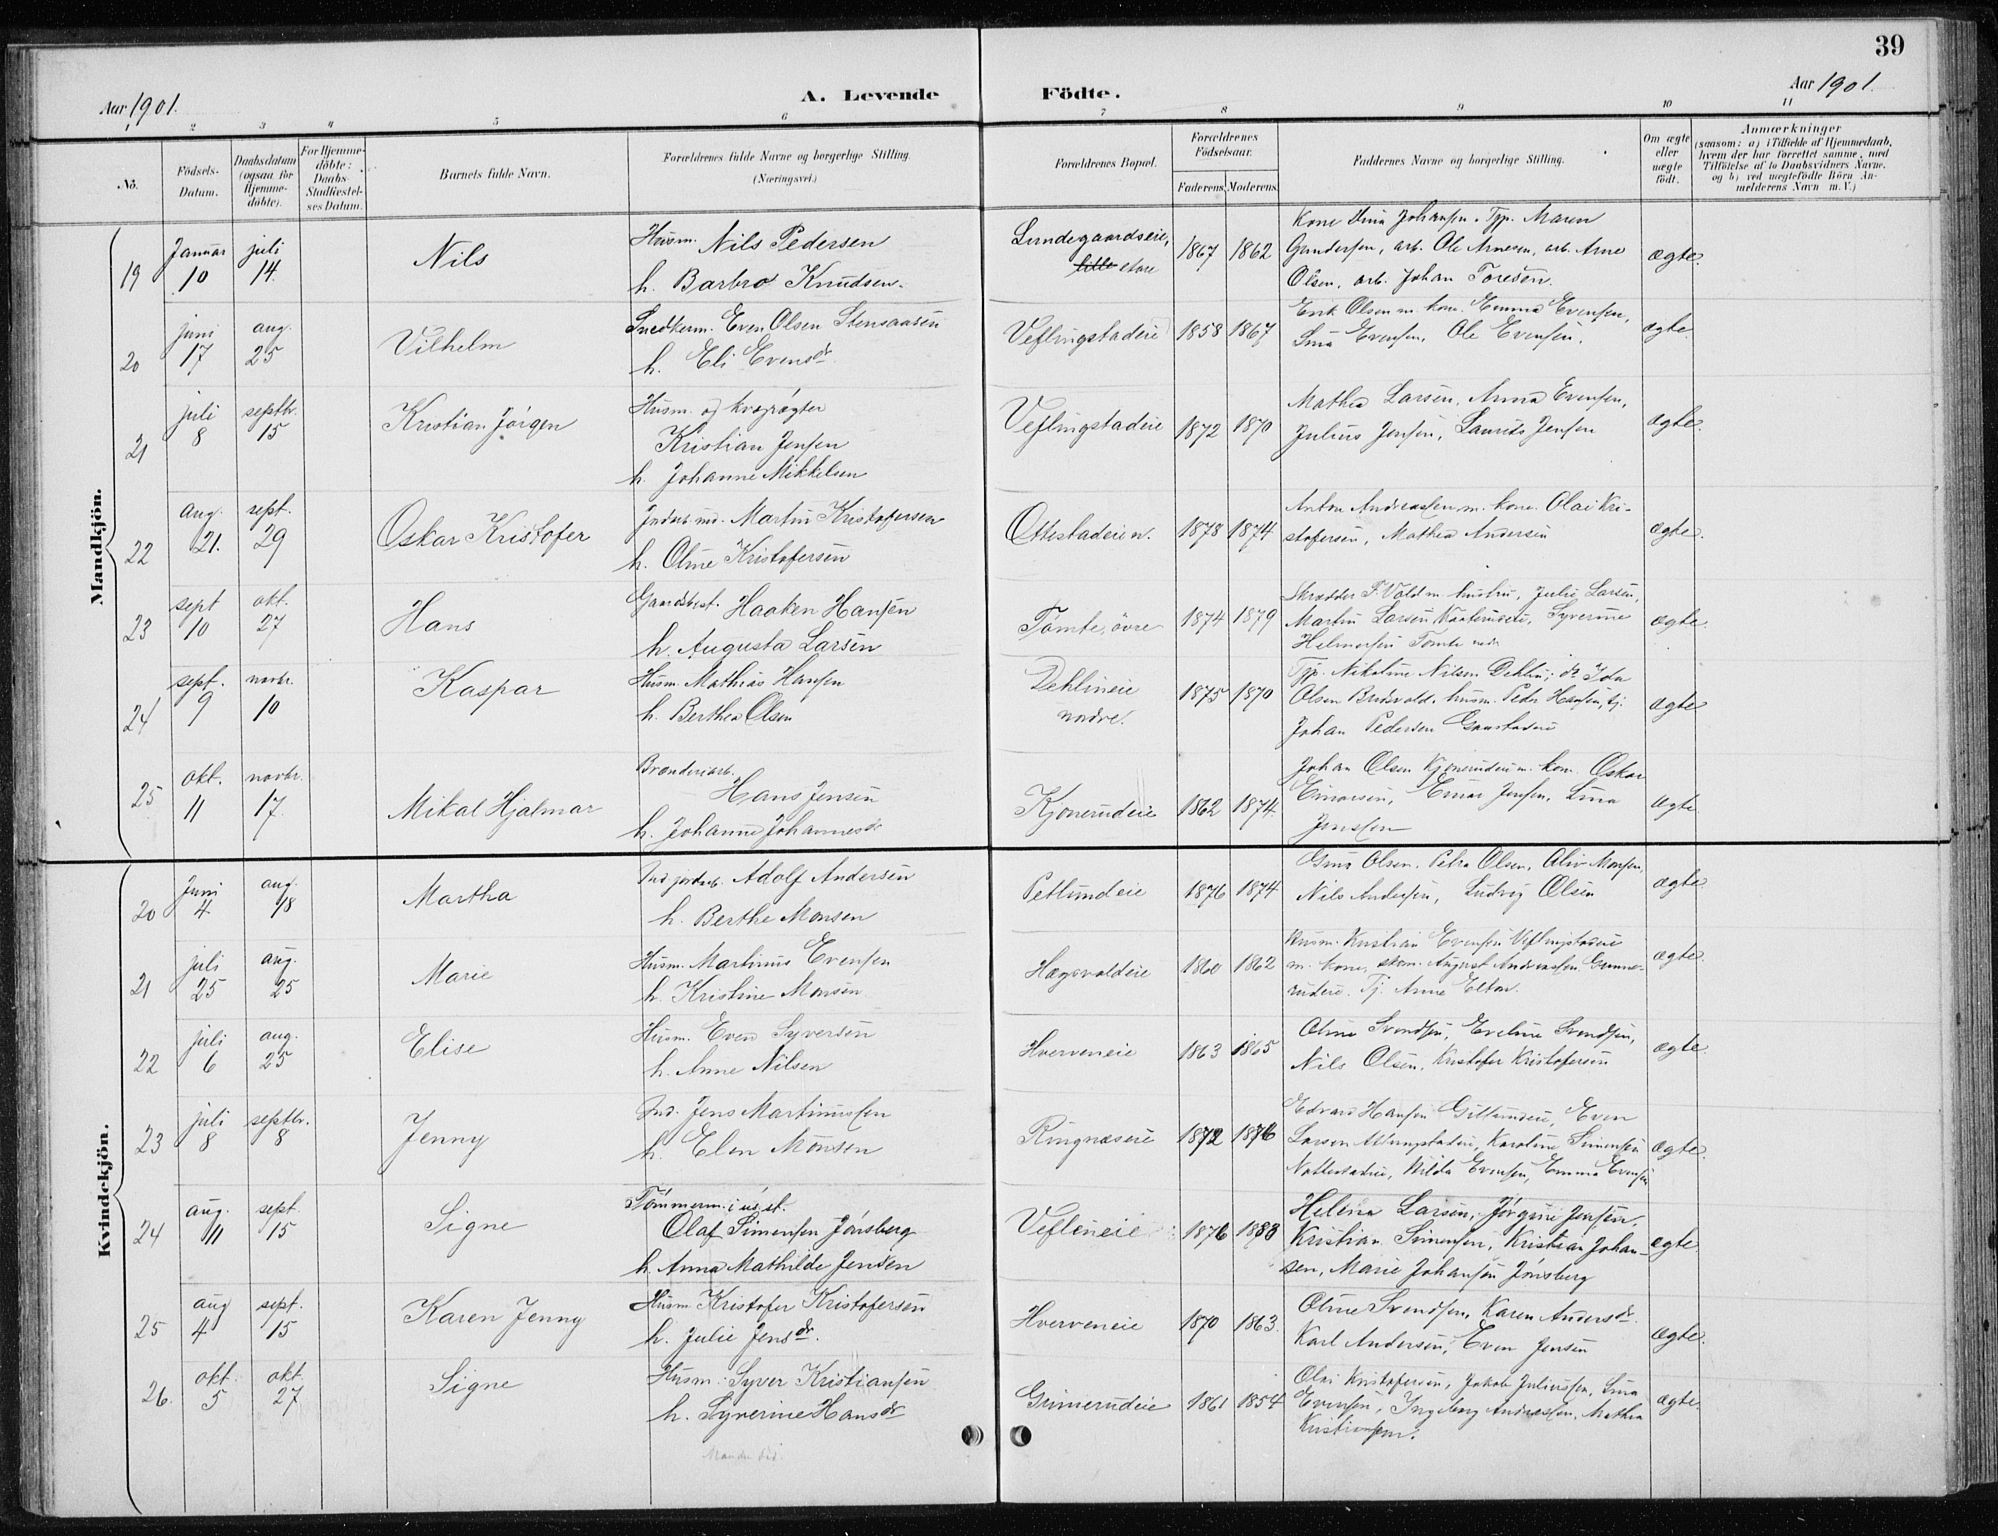 39
Aar 1901.
A. Levende
Födte.
Aar 1901.
1 2 3 4 5 6 7 8 9 10 11
No.
Födsels-
Datum.
Daabsdatum
(ogsaa for
Hjemme-
döbte).
For Hjemme-
döbte:
Daabs-
Stadfæstel-
ses Datum.
Barnets fulde Navn.
Forældrenes fulde Navne og borgerlige Stilling.
(Næringsvei.)
Forældrenes Bopæl.
Forældrenes
Födselsaar.
Faderens. Moderens.
Faddernes Navne og borgerlige Stilling.
Om ægte
eller
uægte
födt.
Anmærkninger
(saasom: a) i Tilfælde af Hjemmedaab,
hvem der har forrettet samme, med
Tilföielse af to Daabsvidners Navne,
og b) ved uægtefödte Börn An-
melderens Navn m. V.)
Mandkjön.
19 Januar 10 juli 14. Nils
Husm. Nils Pedersen
h. Barbro Knudsen.
Lundegaardseie,
lille store
1867 1862
Kone Dina Johansen. Tjp. Maren
Gundersen, arb. Ole Arnesen, arb. Arne
Olsen, arb. Johan Toresen.
ægte.
20 juni 17 aug. 25 Vilhelm
Snedkerm. Even Olsen Stensaasen
h. Eli Evensdr
Veflingstadeie 1858 1867
Erik Olsen m. kone. Emma Evensen,
Lina Evensen, Ole Evensen.
ægte.
21 juli 8 septbr. 15 Kristian Jørgen
Husm. og kvægrøgter
Kristian Jensen
h. Johanne Mikkelsen
Veflingstadeie 1872 1870
Mathea Larsen, Anna Evensen,
Julius Jensen, Laurits Jensen
ægte.
22 aug. 21. sept. 29 Oskar Kristofer
Jordarb. ind. Martin Kristofersen
h. Oline Kristofersen
Ottestadeie n. 1878 1874
Anton Andreassen m. kone. Olai Kri-
stofersen, Mathea Andersen
ægte.
23 sept 10 okt. 27 Hans
Gaardbest. Haaken Hansen
h. Augusta Larsen
Tömte, övre 1874 1879
Skrædder P. Vold m. hustru, Julie Larsen,
Martin Larsen, Syverine
Helmersen Tomte nedr
ægte.
24 sept. 9 novbr. 10 Kaspar
Husm. Mathias Hansen
h. Berthea Olsen
Dehlineie
nedre.
1875 1870
Tjp. Nikoline Nilsen Dehlin; do Ida
Olsen, husm. Peder Hansen, tj.
Johan Pedersen Gaustadeie
ægte
25 okt. 11 novbr. 17. Mikal Hjalmar
Brænderiarb.
Hans Jensen
h. Johanne Johannesdr
Kjonerudeie 1862 1874.
Johan Olsen Kjonerudeie m. kone. Oskar
Einarsen, Einar Jensen, Lina
Jenssen
ægte
Kvindekjön.
20 Juni 4 aug. 18 Martha
Ind jordarb. Adolf Andersen
h. Berthe Monsen
Petlundeie 1876 1874
Gina Olsen. Petra Olsen, Oliv Monsen,
Nils Andersen, Ludvig Olsen
ægte
21 juli 25 aug. 25 Marie
Husm. Martinus Evensen
h. Kristine Monsen
Hægsvoldeie 1860 1862
Husm. Kristian Evensen Veflingstadeie
m. kone, skom. August Andreassen Gunne-
rudeie. Tj. Anne Elton.
ægte
22 juli 6 aug. 25 Elise
Husm. Even Syversen
h. Anne Nilsen
Hverveneie 1863 1865
Oline Svendsen, Eveline Svendsen,
Nils Olsen, Kristofer Kristofersen
ægte
23 juli 8 septbr. 8 Jenny
Ind. Jens Martinussen
h. Elen Monsen
Ringnæseie 1872 1876
Edvard Hansen, Even
Larsen, Karoline Simensen
Hilda Evensen, Emma Evensen
ægte.
24 aug. 11 sept. 15 Signe
Tömmerm. i
Olaf Simensen Jönsberg
h. Anna Mathilde Jensen
Vefleneie 1876 1883
Helena Larsen, Jørgine Jensen,
Kristian Simensen, Kristian Johan-
sen, Marie Johansen Jönsberg
ægte.
25 aug 4 sept. 15 Karen Jenny
Husm. Kristofer Kristofersen
h. Julie Jensdr.
Hverveneie 1870 1863.
Oline Svendsen, Karen Andersdr.
Karl Andersen, Even Jensen
ægte.
26. okt. 5 okt. 27 Signe
Husm. Syver Kristiansen
h. Syverine Hansdr
Gunerudeie 1861 1854
Olai Kristofersen, Jakob Juliussen, Lina
Evensen, Ingeborg Andreassen, Mathea
Kristiansen.
ægte.